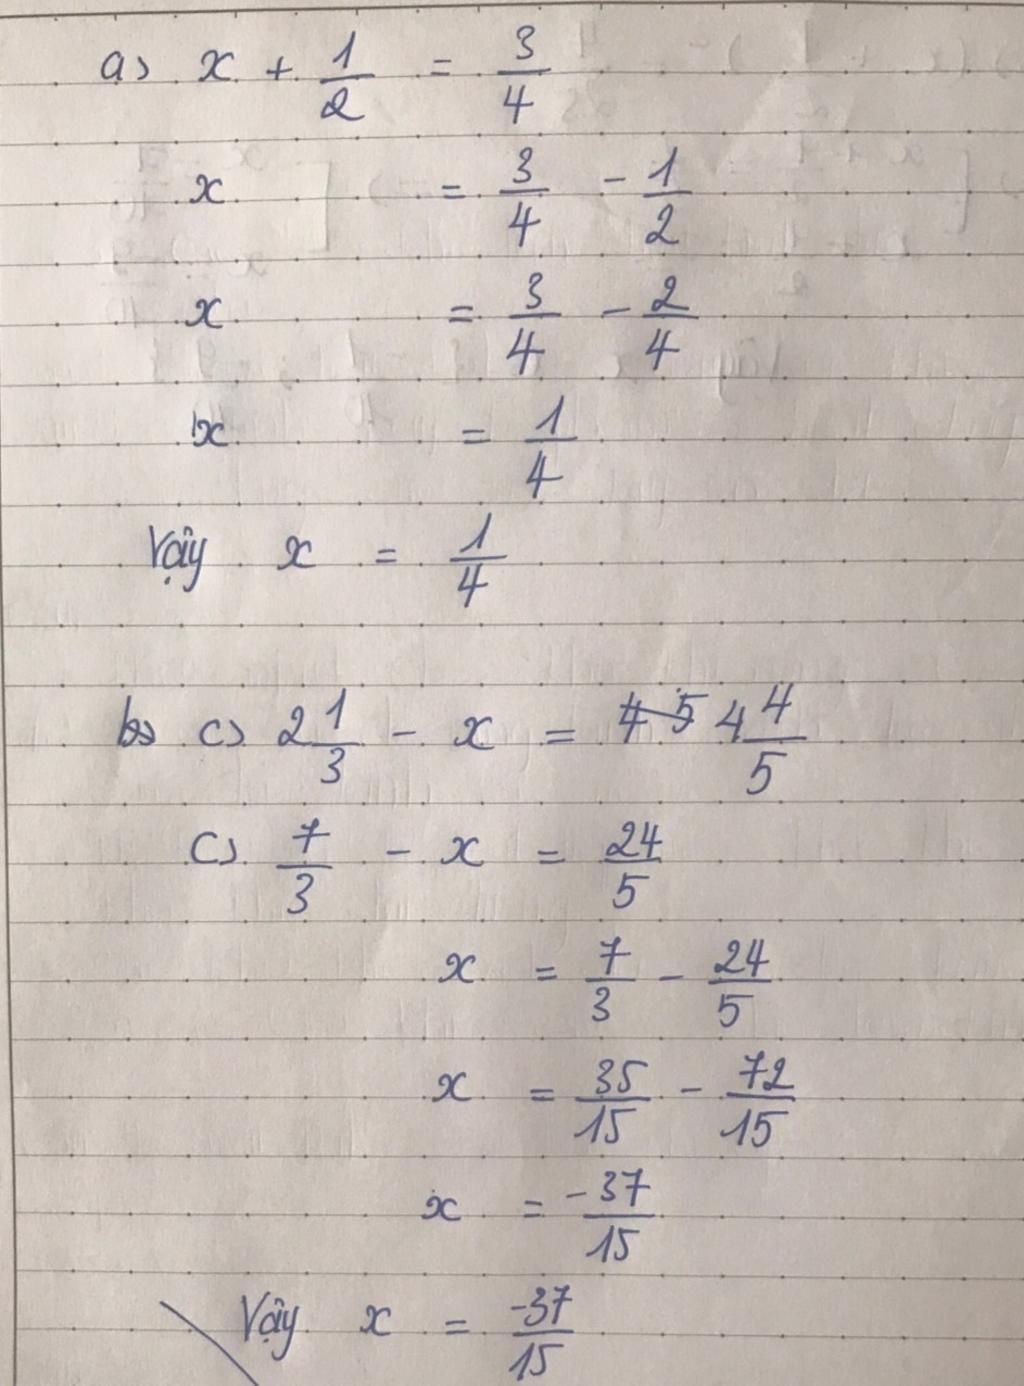 a) x + 1/2 = 3/4
x = 3/4 - 1/2
x = 3/4 - 2/4
x = 1/4
Vậy x = 1/4
b) c) 2 1/3 - x = 4 5 4 4/5
c) 7/3 - x = 24/5
x = 7/3 - 24/5
x = 35/15 - 72/15
x = -37/15
Vậy x = -37/15